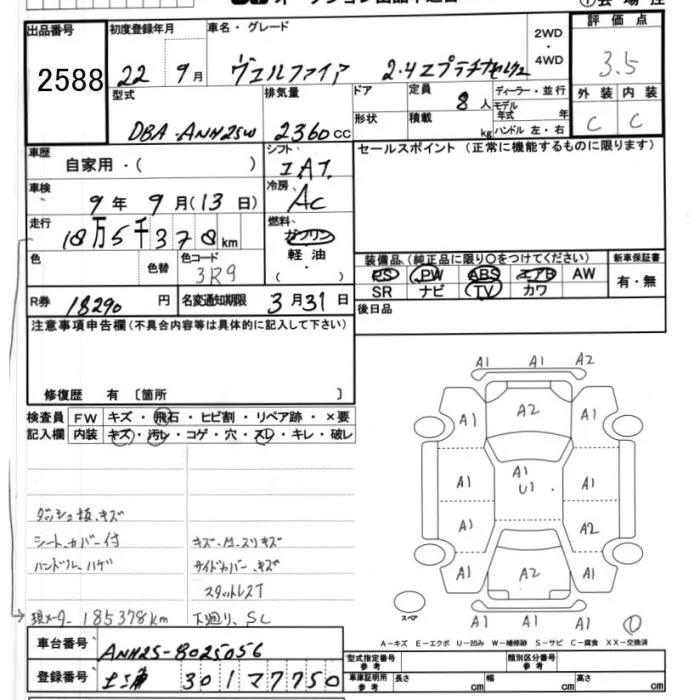 出品番号
2588
初度登録年月
22年 9月
車名・グレード
ヴェルファイア 2.4Z プラチナセレクション
2WD
・
4WD
評価点
3.5
外装 内装
C C
型式
DBA-ANH25W
排気量
2360cc
ドア
形状
定員
8人
積載
kg
ディーラー・並行
モデル
年式 年
ハンドル 左・右
車歴
自家用・( )
シフト
IAT
セールスポイント (正常に機能するものに限ります)
車検
9年 9月(13日)
冷房
AC
走行
18万5千378km
燃料
ガソリン
軽油
( ・ )
色
色替
色コード
3R9
装備品 (純正品に限り○をつけてください)
PS PW ABS エアB AW
SR ナビ TV カワ
新車保証書
有・無
R券
18290円
名変通知期限
3月31日
後日品
注意事項申告欄(不具合内容等は具体的に記入して下さい)
修復歴 有 〔箇所 〕
検査員
記入欄
FW キズ・飛石・ヒビ割・リペア跡・×要
内装 キズ・汚レ・コゲ・穴・スレ・キレ・破レ
ダッシュ板、キズ
シートカバー付
ハンドル、ハゲ
現メーター 185378km
キズ、M、スリキズ
サイドカバー、キズ
スタットレスT
下廻り、SC
A1 A1 A2
A1 A2 A1
A1 A1 U1 A1
A1 A2
A1 A2 A1
A1 A1 A1
スペア
A-キズ E-エクボ U-凹み W-補修跡 S-サビ C-腐食 XX-交換済
車台番号
ANH25-8025056
登録番号
土浦 301 マ 7750
型式指定番号
参考
類別区分番号
参考
車庫証明用
参考
長さ cm
幅 cm
高さ cm